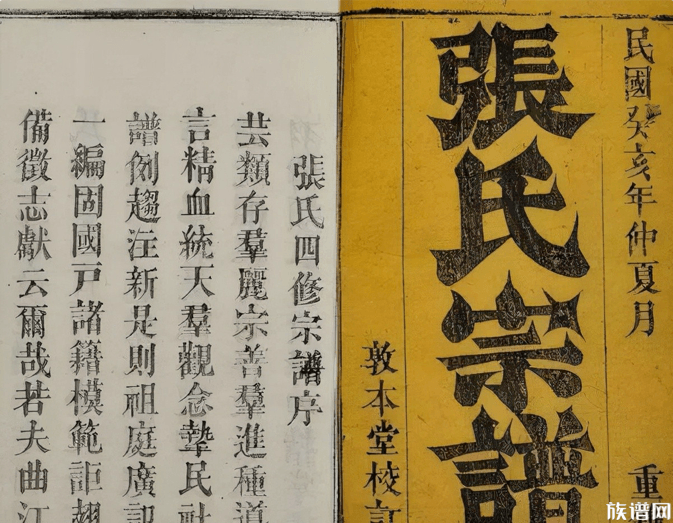 民國癸亥年仲夏月
重
張氏宗譜
敦本堂校訂
張氏四修宗譜序
芸類存羣麗宗善羣進種道
言精血統天羣觀念摯民社
譜例趨注新是則祖庭廣詔
一編固國戸諸籍模範詎翅
備徵志獻云爾哉若夫曲江
族谱网